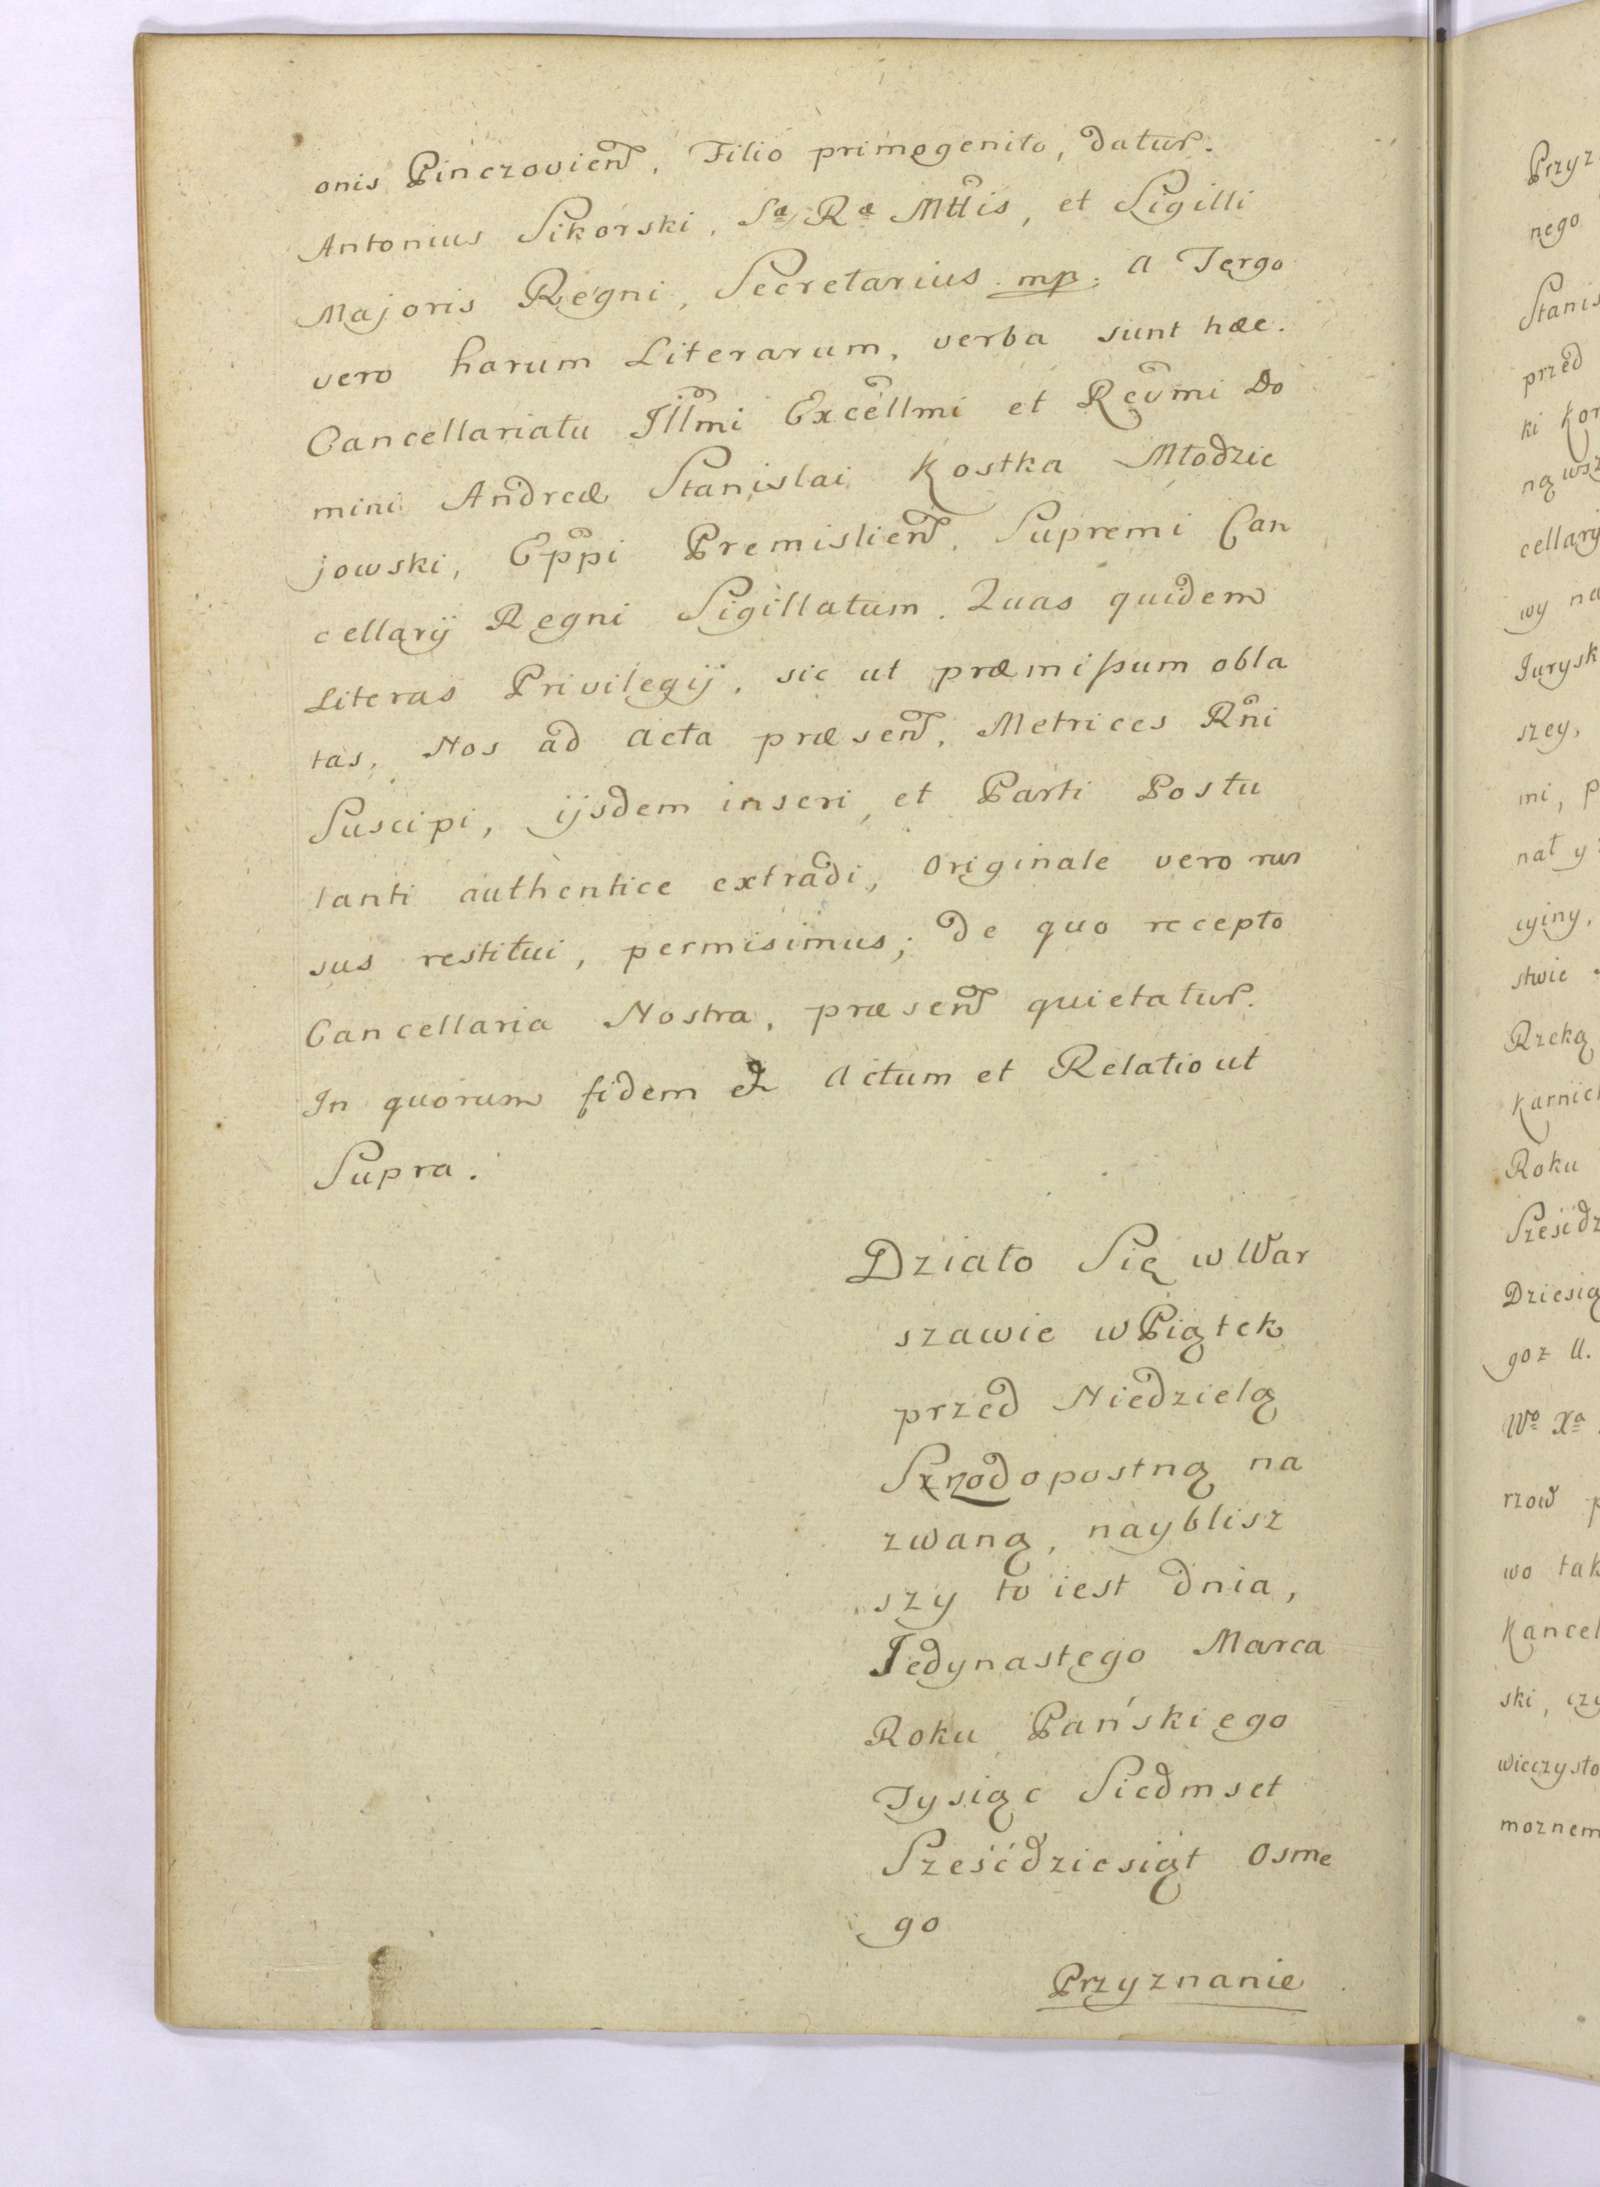 onis Pinczovien̄, Filio primogenito, datur.
Antonius Sikorski, Sæ Ræ Mttis, et Sigilli
Majoris Regni, Secretarius mp. A Tergo
vero harum Literarum, verba sunt hæc.
Cancellariatu Illmi Excellmi et Reūmi Do
mini Andreæ Stanislai Kostka Młodzie
jowski, Eppi Premislien̄, Supremi Can
cellarij Regni Sigillatum. Quas quidem
Literas Privilegij, sic ut præmißum obla
tas, Nos ad Acta præsen̄, Metrices Rñi
Suscipi, ijsdem inseri, et Parti Postu
lanti authentice extradi, Originale vero rur
sus restitui, permisimus; de quo recepto
Cancellaria Nostra, præsen̄ quietatur.
In quorum fidem et Actum et Relatio ut
Supra.
Działo Się w War
szawie w Piątek
przed Niedzielą
Szrodopostną na
zwaną, nayblisz
szy to iest dnia,
Jedynastego Marca
Roku Pańskiego
Tysiąc Siedmset
Sześćdziesiąt Osme
go
Przyznanie
nego
Stanis
przed
ki Kor
ną wsz
cellary
wy na
Jurysk
szey,
mi, p
nał y
cyiny,
stwie
Rzeką
Karnic
Roku
Sześćdz
Dziesią
goż U.
Wº Xª
rzow p
wo tak
Kancel
ski, czy
wieczysto
moznem